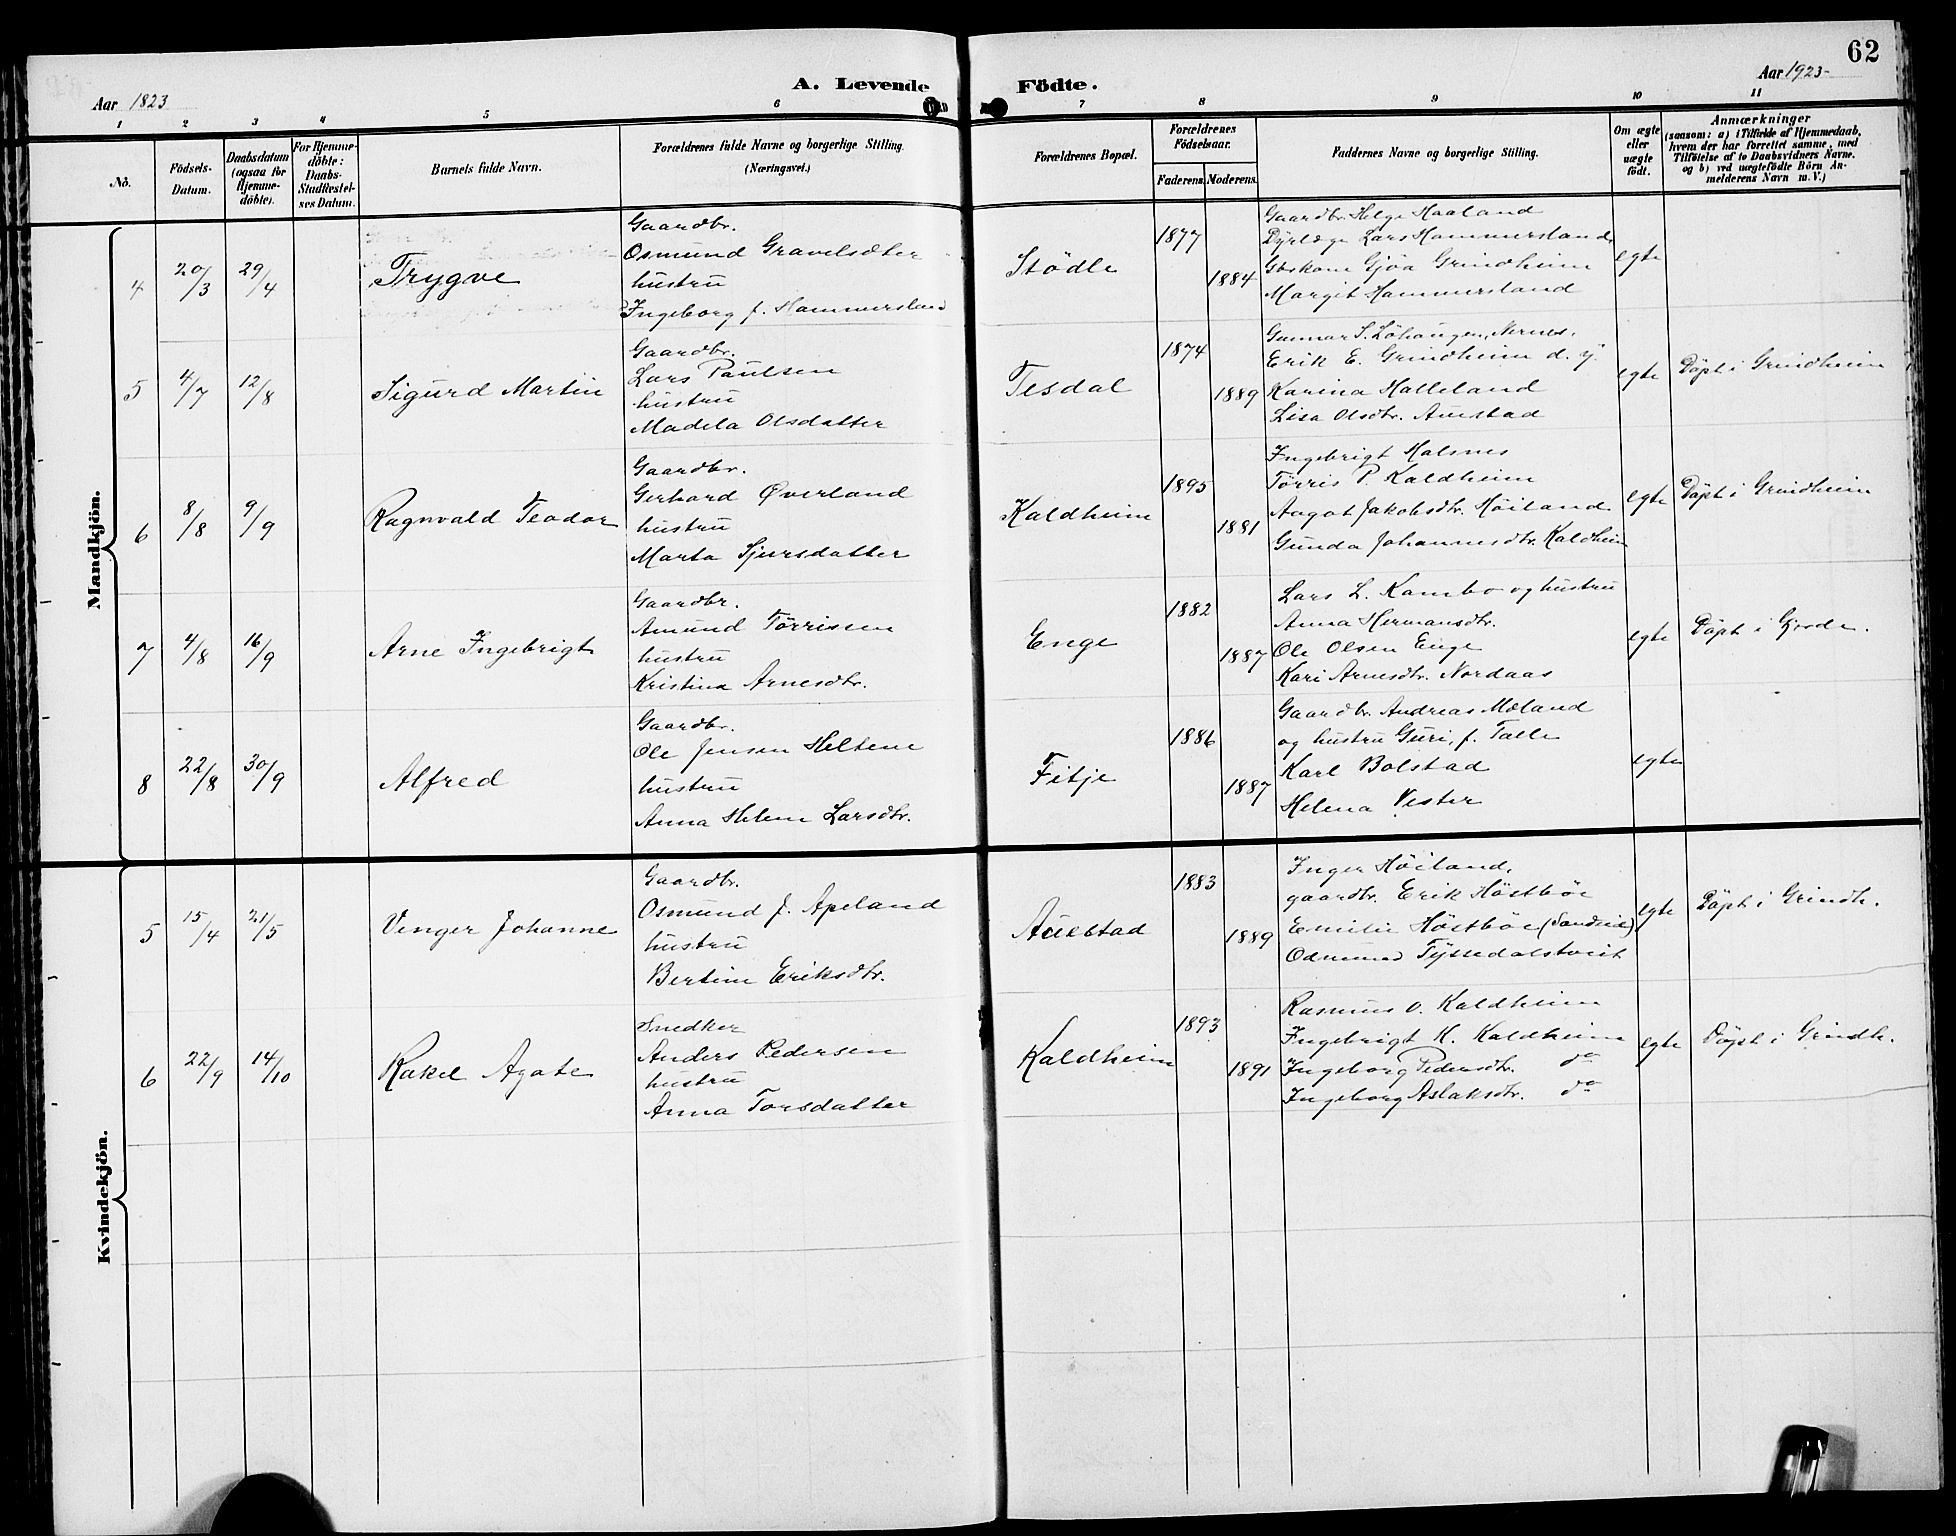 62
A. Levende Födte.
Aar 1823
Aar 1923-
1 2 3 4 5 6 7 8 9 10 11
No.
Födsels-Datum.
Daabsdatum (ogsaa for Hjemme-döbte).
For Hjemme-döbte: Daabs-Stadfæstel-ses Datum.
Barnets fulde Navn.
Forældrenes fulde Navne og borgerlige Stilling. (Næringsvei.)
Forældrenes Bopæl.
Forældrenes Födselsaar.
Faderens. Moderens.
Faddernes Navne og borgerlige Stilling.
Om ægte eller uægte födt.
Anmærkninger
(saasom: a) i Tilfælde af Hjemmedaab, hvem der har forrettet samme, med Tilföielse af to Daabsvidners Navne, og b) ved uægtefödte Börn An-melderens Navn m. V.)
Mandkjön.
4 20/3 29/4 Trygve
Gaardbr.
Osmund Gravelsæter
hustru
Ingeborg f. Hammersland
Stödle 1877 1884
Gaardbr. Helge Haaland
Dyrlæge Lars Hammersland
Gjøa Grindheim
Margit Hammersland
egte
5 4/7 12/8 Sigurd Martin
Gaardbr.
Lars Paulsen
hustru
Madela Olsdatter
Tesdal 1874 1889
Gunnar S. Löhaugen, Nernes.
Erik E. Grindheim d. y.
Karina Halleland
Lisa Olsdtr. Auestad
egte Döpt i Grindheim
6 8/8 9/9 Ragnvald Teodor
Gaardbr.
Gerhard Øverland
hustru
Marta Sjursdatter
Kaldheim 1895 1881
Ingebrigt Malsnes
Törris P. Kaldheim
Aagot Jakobsdtr. Höiland
Gunda Johannesdtr. Kaldheim
egte Döpt i Grindheim
7 4/8 16/9 Arne Ingebrigt
Gaardbr.
Amund Törrissen
hustru
Kristina Arnesdtr.
Enge 1882 1887
Lars L. Kambo og hustru
Anna Hermansdtr.
Ole Olsen Enge
Kari Arnesdtr. Nordaas
egte Döpt i Gjerde.
8 22/8 30/9 Alfred
Gaardbr.
Ole Jensen Heltene
hustru
Anna Helene Larsdtr.
Fitje 1886 1887
Gaardbr. Andreas Mæland
og hustru Guri, f. Talle
Karl Bolstad
Helena Vester
egte
Kvindekjön.
5 15/4 21/5 Venger Johanne
Gaardbr.
Osmund J. Apeland
hustru
Bertine Eriksdtr.
Auestad 1883 1889
Inger Höiland,
gaardbr. Erik Höstböe
Emilie Höstböe
Odmund Tyssedalstveit
egte Döpt i Grindh.
6 22/9 14/10 Rakel Agate
Snedker
Anders Pedersen
hustru
Anna Torsdatter
Kaldheim 1893 1891
Rasmus O. Kaldheim
Ingebrigt K. Kaldheim
Ingeborg Pedersdtr. do
Ingeborg Aslaksdtr. do
egte Döpt i Grindh.